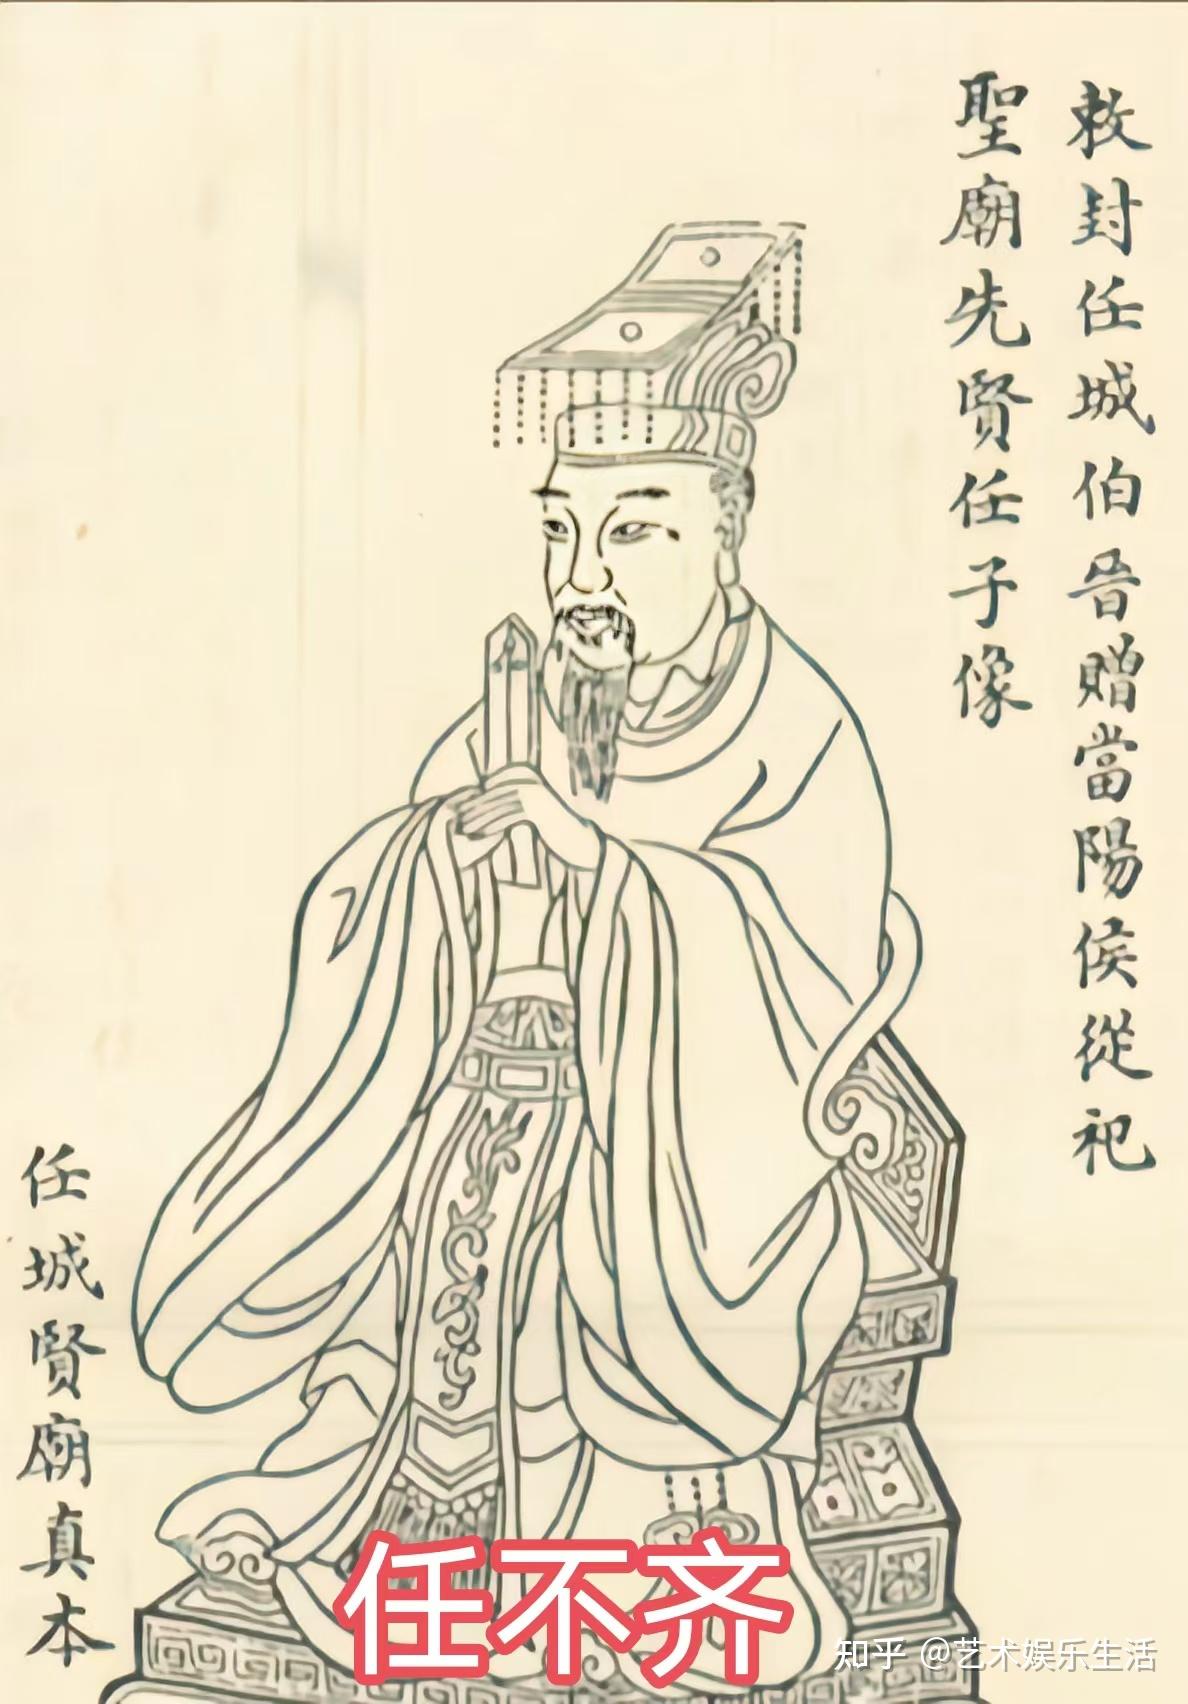 敕封任城伯晉贈當陽侯從祀
聖廟先賢任子像
任城賢廟真本
任不齐
知乎 @艺术娱乐生活